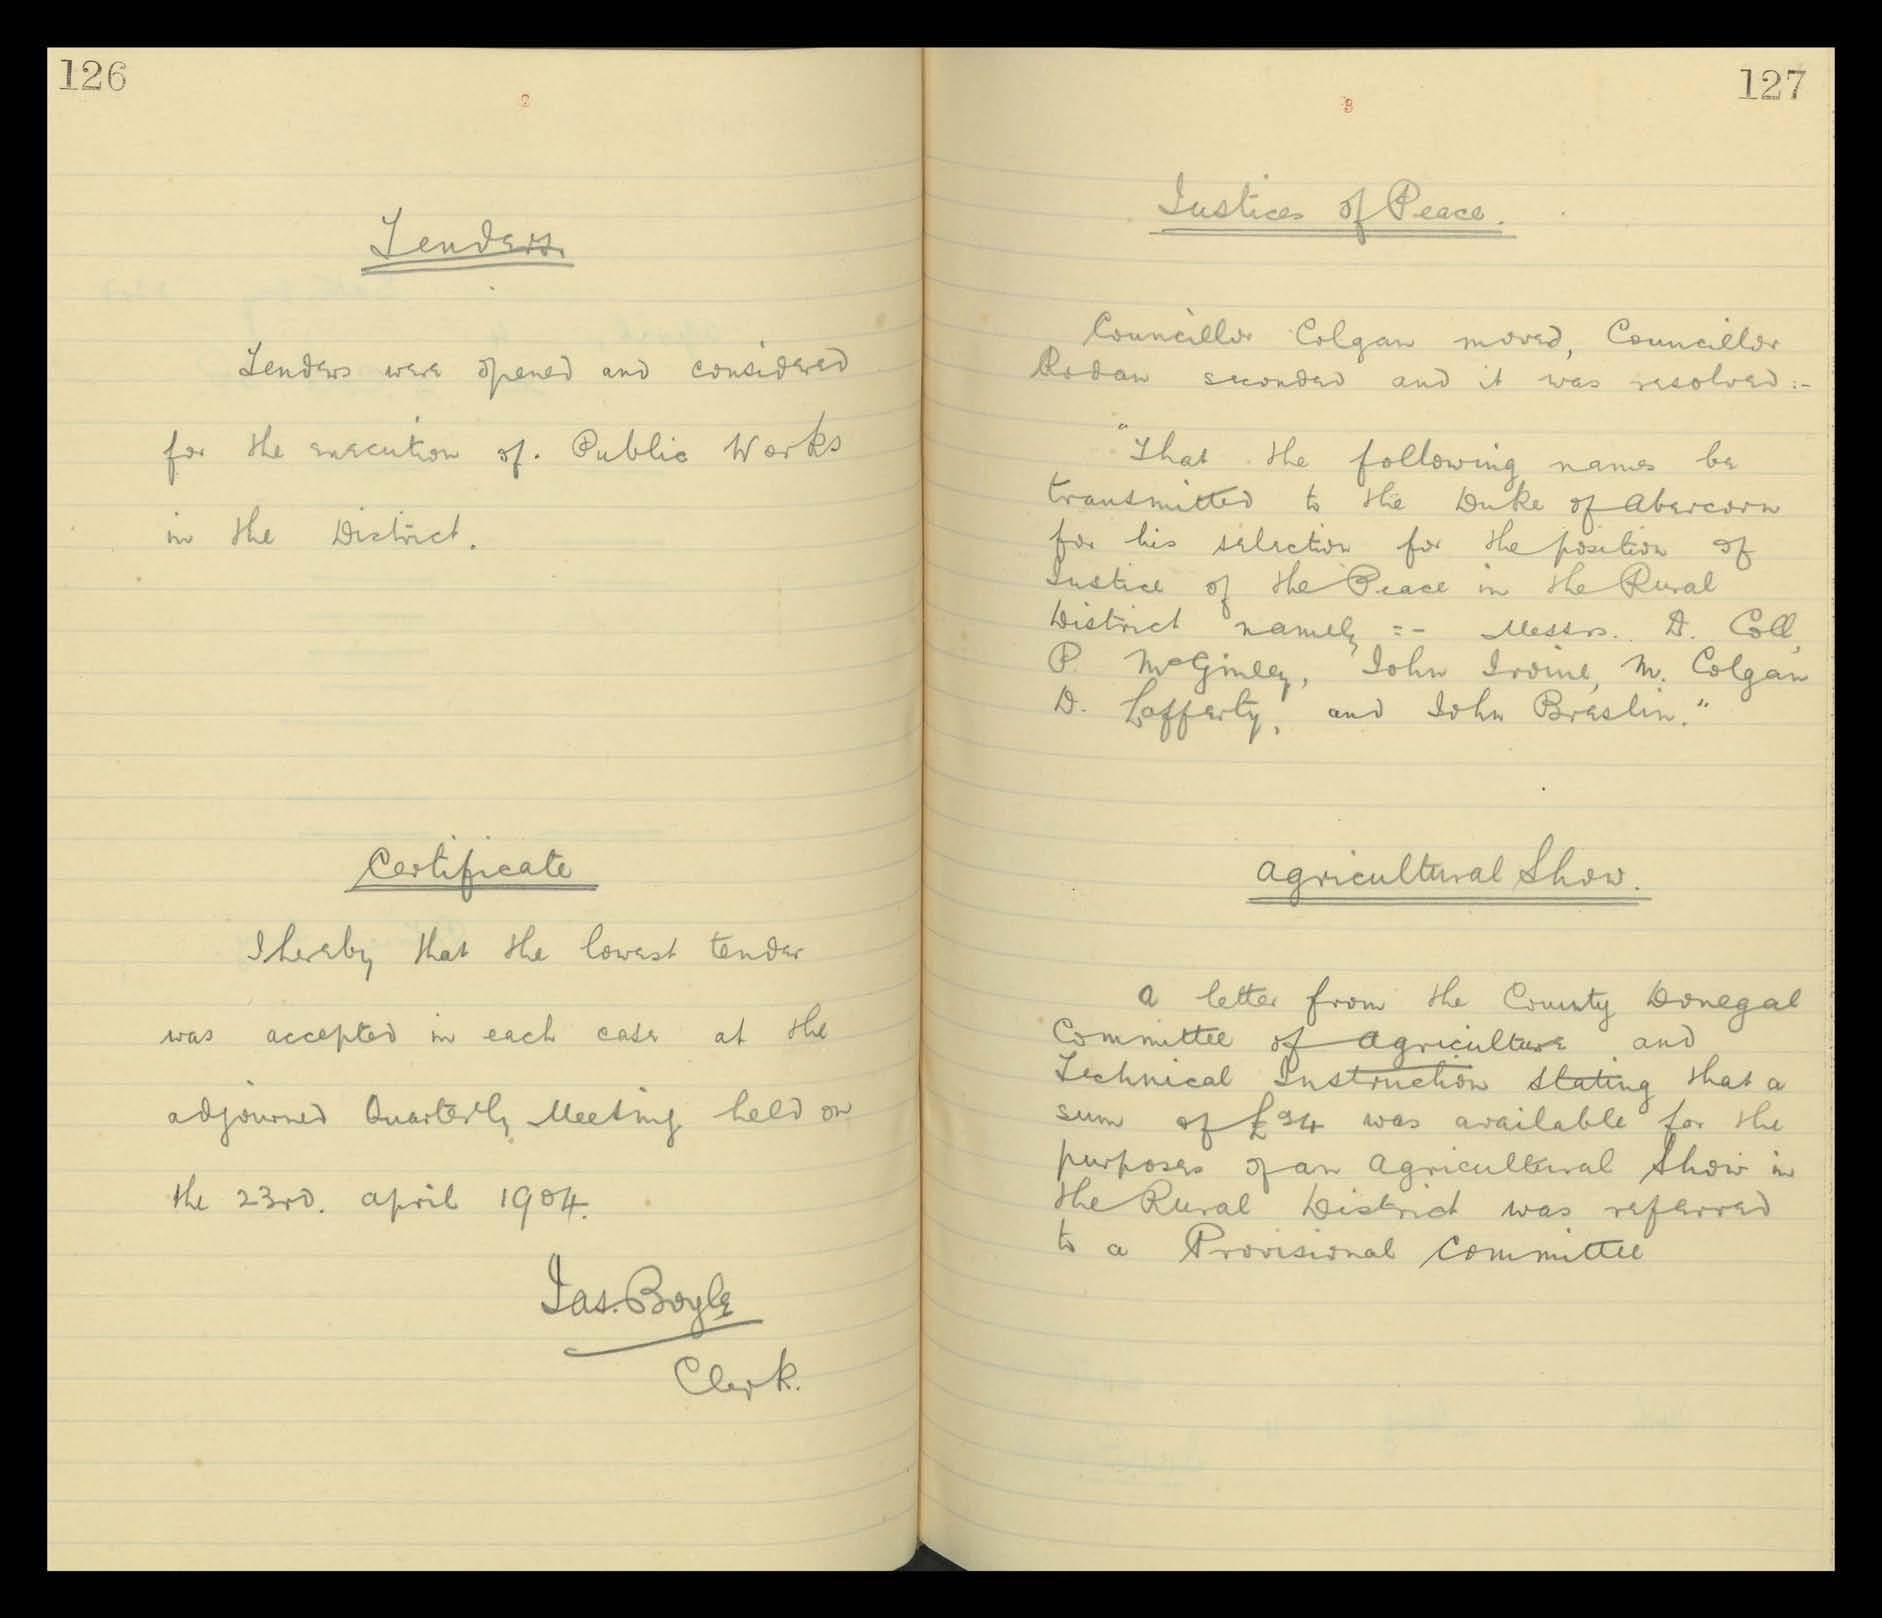 126
2
Tenders.
Tenders were opened and considered
for the execution of. Public Works
in the District.
Certificate
I hereby that the lowest tender
was accepted in each case at the
adjourned Quarterly Meeting held on
the 23rd. April 1904.
Jas. Boyle
Clerk.
127
3
Justices of Peace.
Councillor Colgan moved, Councillor
Rodan seconded and it was resolved :-
"That the following names be
transmitted to the Duke of Abercorn
for his selection for the position of
Justice of the Peace in the Rural
District namely :- Messrs. D. Coll,
P. McGinley, John Irvine, M. Colgan
D. Lafferty, and John Breslin."
Agricultural Show.
A letter from the County Donegal
Committee of Agriculture and
Technical Instruction stating that a
sum of £94 was available for the
purposes of an Agricultural Show in
the Rural District was referred
to a Provisional Committee